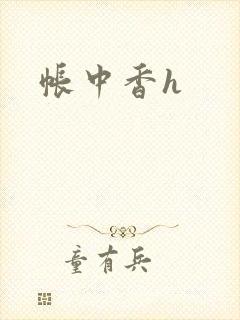 帳中香h
童有兵